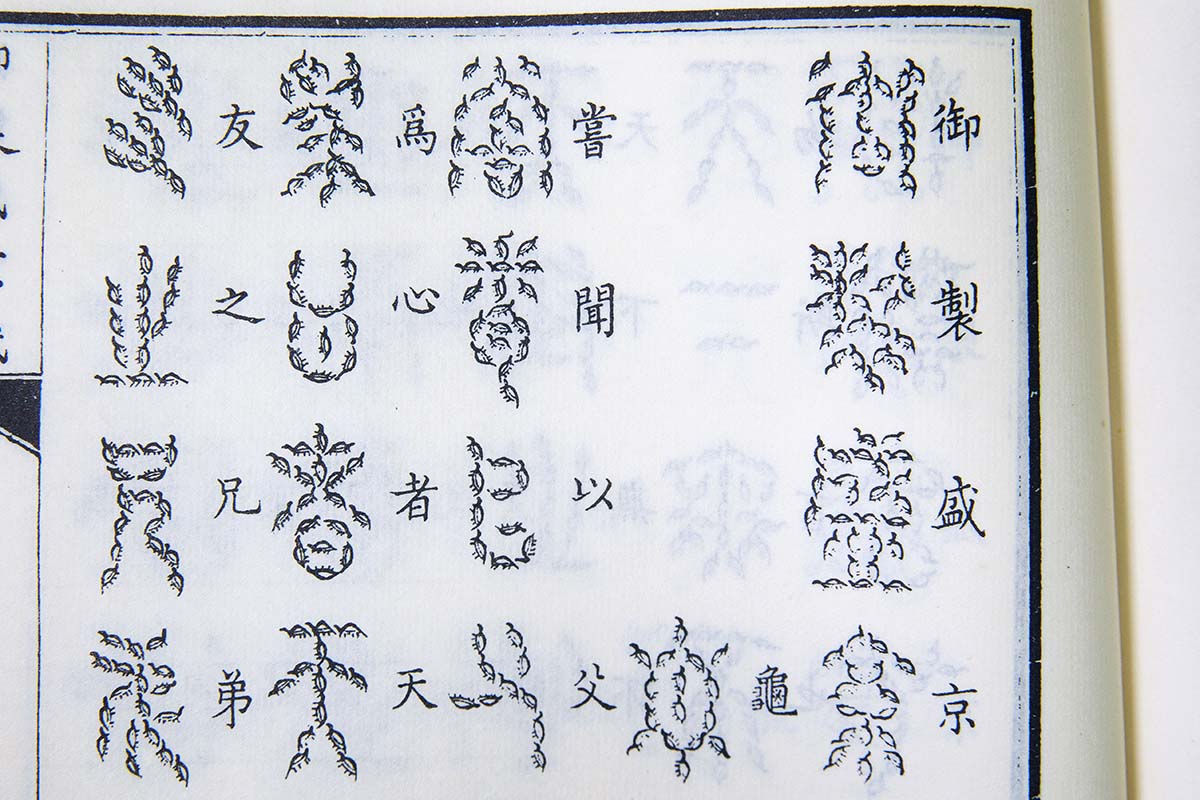 御製盛京
龜
嘗聞以父
爲心者天
友之兄弟